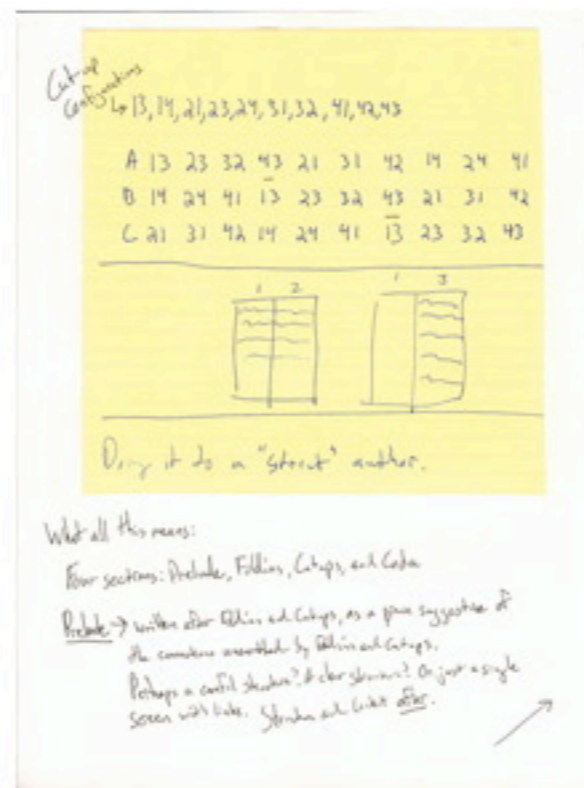 Cut-up
Configurations
↳ 13, 14, 21, 23, 24, 31, 32, 41, 42, 43
A 13 23 32 43 21 31 42 14 24 41
B 14 24 41 13 23 32 43 21 31 42
C 21 31 42 14 24 41 13 23 32 43
1 2 1 3
it to a " " author.
What all this means:
Four sections: Prelude, Fillins, Cutups, and Coda
Prelude → written after Fillins and Cutups, as a suggestive of
the by Fillins and Cutups.
Perhaps a structure? A structure? Or just a single
screen with links. and after.